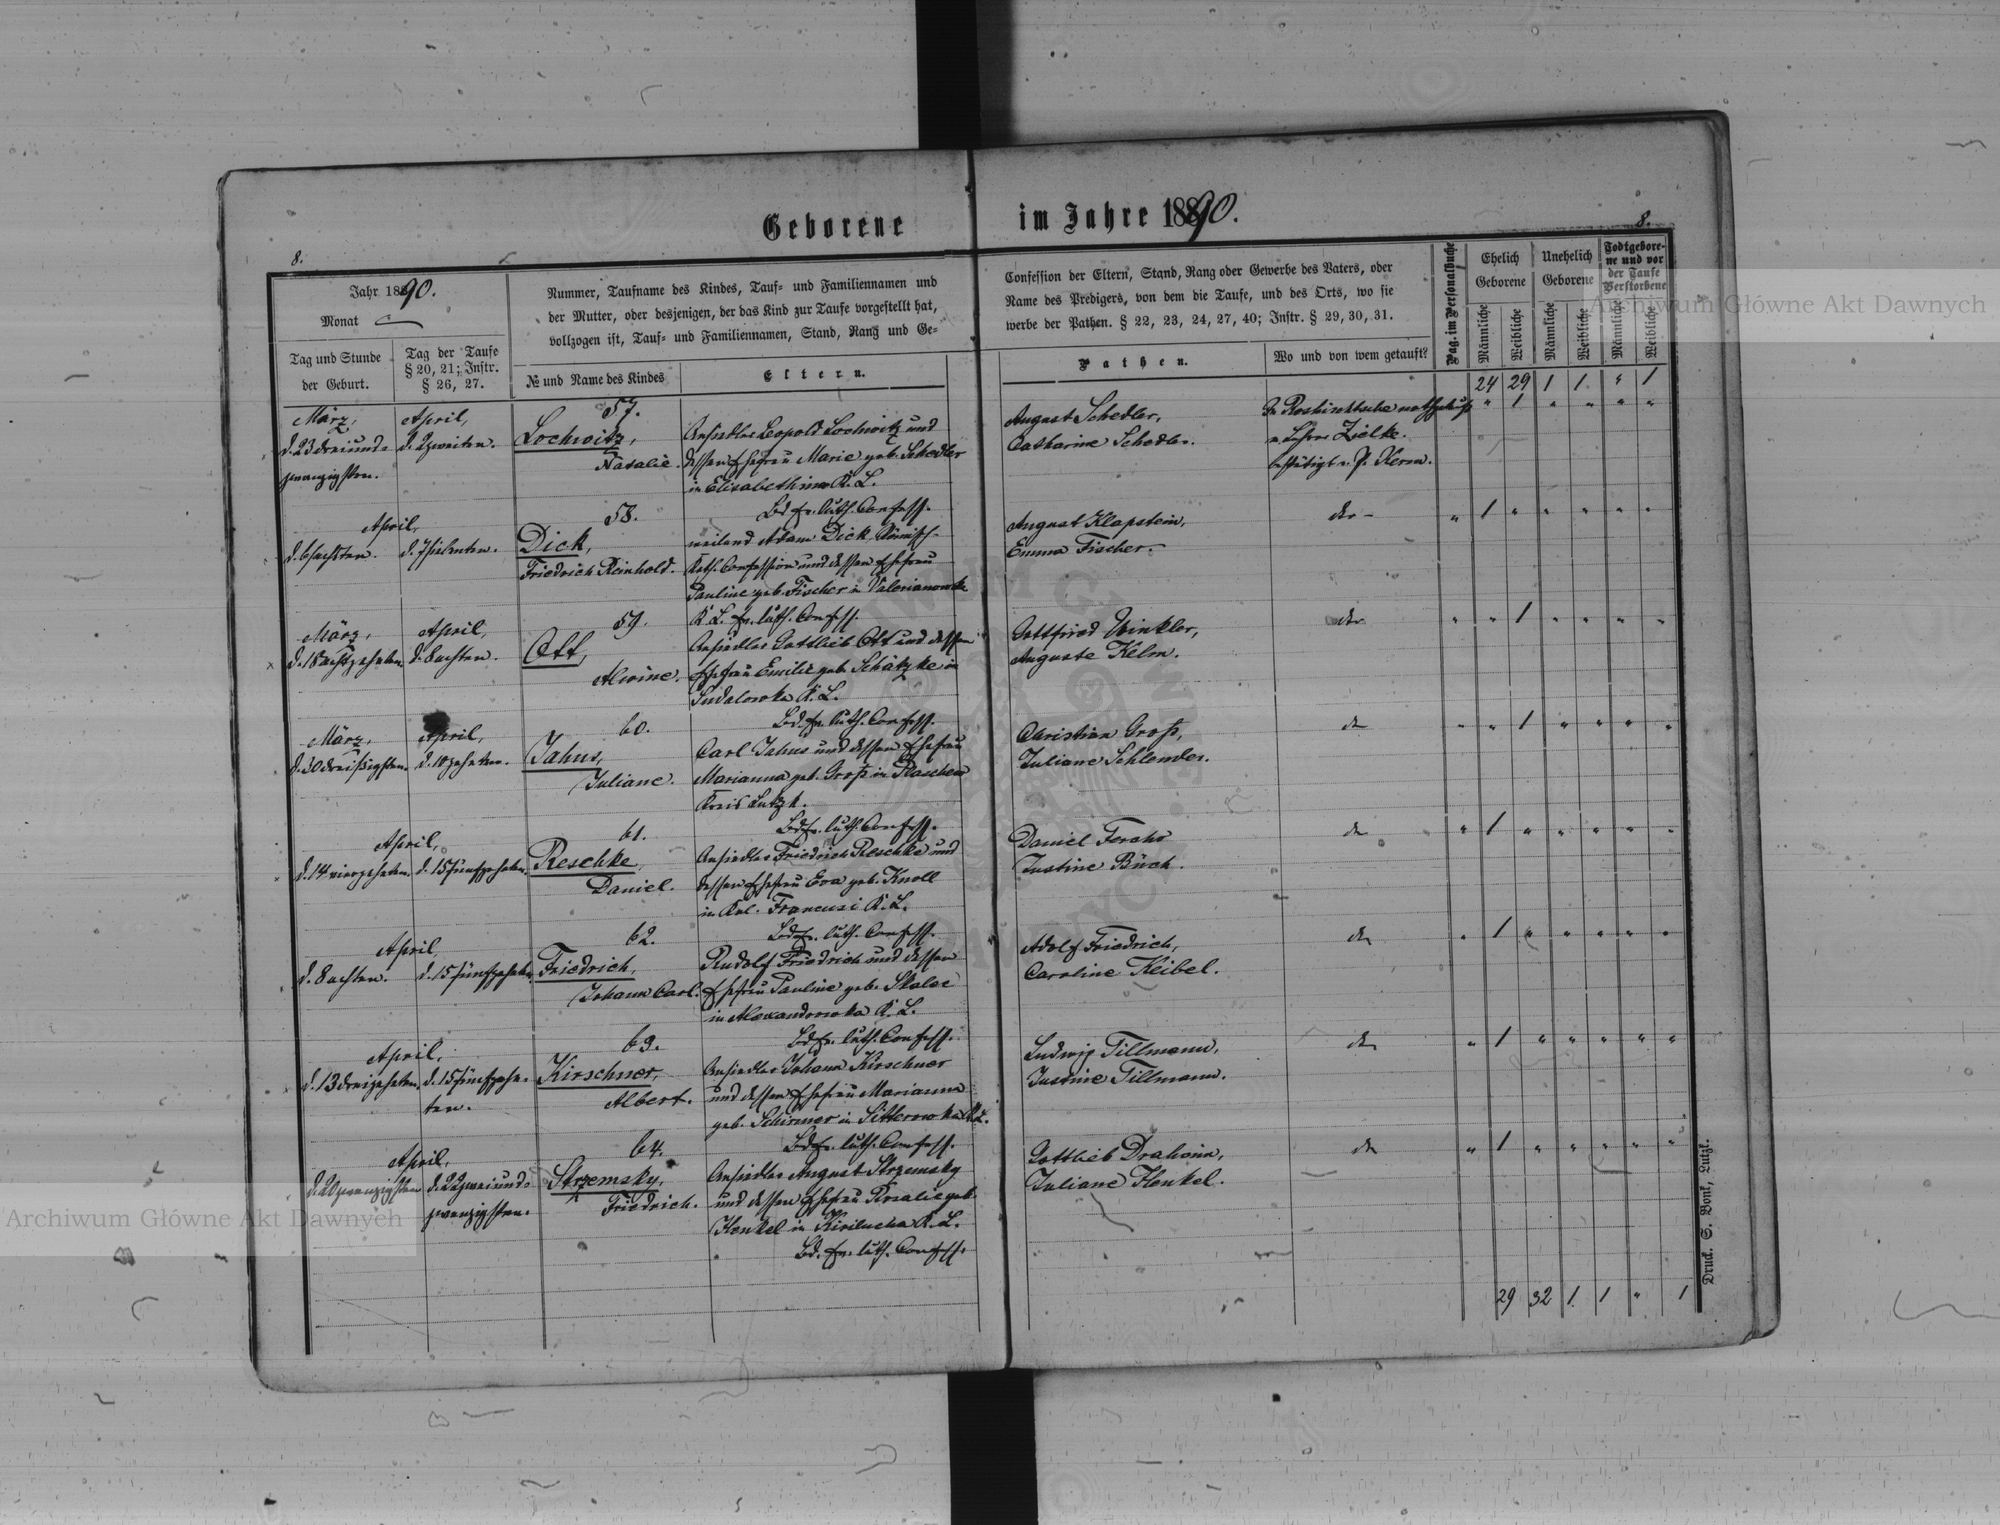 Geborene im Jahre 1890.
8.
8.
Jahr 1890.
Monat
Tag und Stunde
der Geburt.
Tag der Taufe
§ 20, 21; Instr.
§ 26, 27.
Nummer, Taufname des Kindes, Tauf- und Familiennamen und
der Mutter, oder desjenigen, der das Kind zur Taufe vorgestellt hat,
vollzogen ist, Tauf- und Familiennamen, Stand, Rang und Ge-
№ und Name des Kindes
Eltern.
Confession der Eltern, Stand, Rang oder Gewerbe des Vaters, oder
Name des Predigers, von dem die Taufe, und des Orts, wo sie
werbe der Pathen. § 22, 23, 24, 27, 40; Instr. § 29, 30, 31.
Pathen.
Wo und von wem getauft?
Pag. im Personalbuche
Ehelich
Geborene
Unehelich
Geborene
Todtgebore-
ne und vor
der Taufe
Verstorbene
Männliche
Weibliche
Männliche
Weibliche
Männliche
Weibliche
24 29 1 1 " 1
57.
März,
d. 23 dreiund-
zwanzigsten.
April,
d. 2 zweiten.
Lochwitz,
Natalie.
Ansiedler Leopold Lochwitz und
dessen Ehefrau Marie geb. Schedler
in Elisabethinow K. L.
Bd. ev. luth. Confess.
August Schedler,
Catharine Schedler.
In Roshischtsche nothgetauft
v. Lehrer Zielke.
bestätigt v. P. Kerm.
" 1 " " " "
58.
April,
d. 6 sechsten.
d. 7 siebenten.
Dick,
Friedrich Reinhold.
weiland Adam Dick, Römisch-
Kath. Confession und dessen Ehefrau
Pauline geb. Fischer in Valerianowka
K. L. ev. luth. Confess.
August Klapstein,
Emma Fischer.
" 1 " " " " "
59.
März,
d. 18 achtzehnten
April,
d. 8 achten.
Ott,
Alwine.
Ansiedler Gottlieb Ott und dessen
Ehefrau Emilie geb. Schätzke in
K. L.
Bd. ev. luth. Confess.
Gottfried Winkler,
Auguste Kelm.
" " 1 " " " "
60.
März,
d. 30 dreißigsten.
April,
d. 10 zehnten.
Jahns,
Juliane.
Carl Jahns und dessen Ehefrau
Marianna geb. Groß in
Kreis Lutzk.
Bd. ev. luth. Confess.
Christian Groß,
Juliane Schlender.
" " 1 " " " "
61.
April,
d. 14 vierzehnten.
d. 15 fünfzehnten.
Reschke,
Daniel.
Ansiedler Friedrich Reschke und
dessen Ehefrau Eva geb. Knoll
in Kol. K. L.
Bd. ev. luth. Confess.
Daniel Fercho
Justine Bück.
" 1 " " " " "
62.
April,
d. 8 achten.
d. 15 fünfzehnten
Friedrich,
Johann Carl.
Rudolf Friedrich und dessen
Ehefrau Pauline geb.
in Alexandrowka K. L.
Bd. ev. luth. Confess.
Adolf Friedrich,
Caroline Keibel.
" 1 " " " " "
63.
April,
d. 13 dreizehnten.
d. 15 fünfzehn-
ten.
Kirschner,
Albert.
Ansiedler Johann Kirschner
und dessen Ehefrau Marianna
geb. Schirmer in K. L.
Bd. ev. luth. Confess.
Ludwig Tillmann,
Justine Tillmann.
" 1 " " " " "
64.
April,
d. 20 zwanzigsten
d. 22 zweiund-
zwanzigsten.
Strzemsky,
Friedrich.
Ansiedler August Strzemsky
und dessen Ehefrau Rosalie geb.
Henkel in K. L.
Bd. ev. luth. Confess.
Gottlieb Draheim,
Juliane Henkel.
" 1 " " " " "
29 32 1 1 " 1
Druck. S. Bonk, Lutzk.
Archiwum Główne Akt Dawnych
Archiwum Główne Akt Dawnych